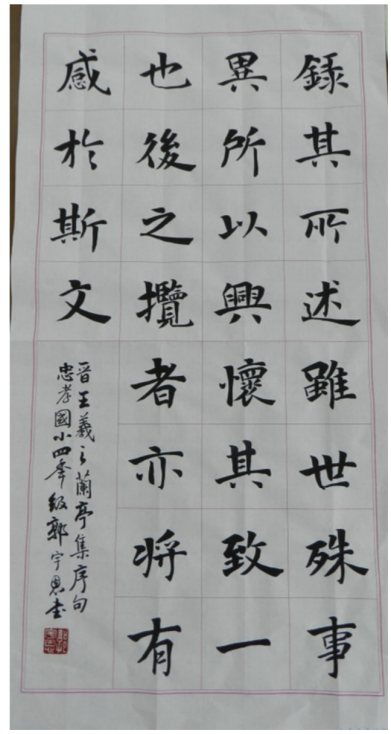 錄其所述雖世殊事
異所以興懷其致一
也後之攬者亦將有
感於斯文
晋王羲之蘭亭集序句
忠孝國小四年級郭宇恩書